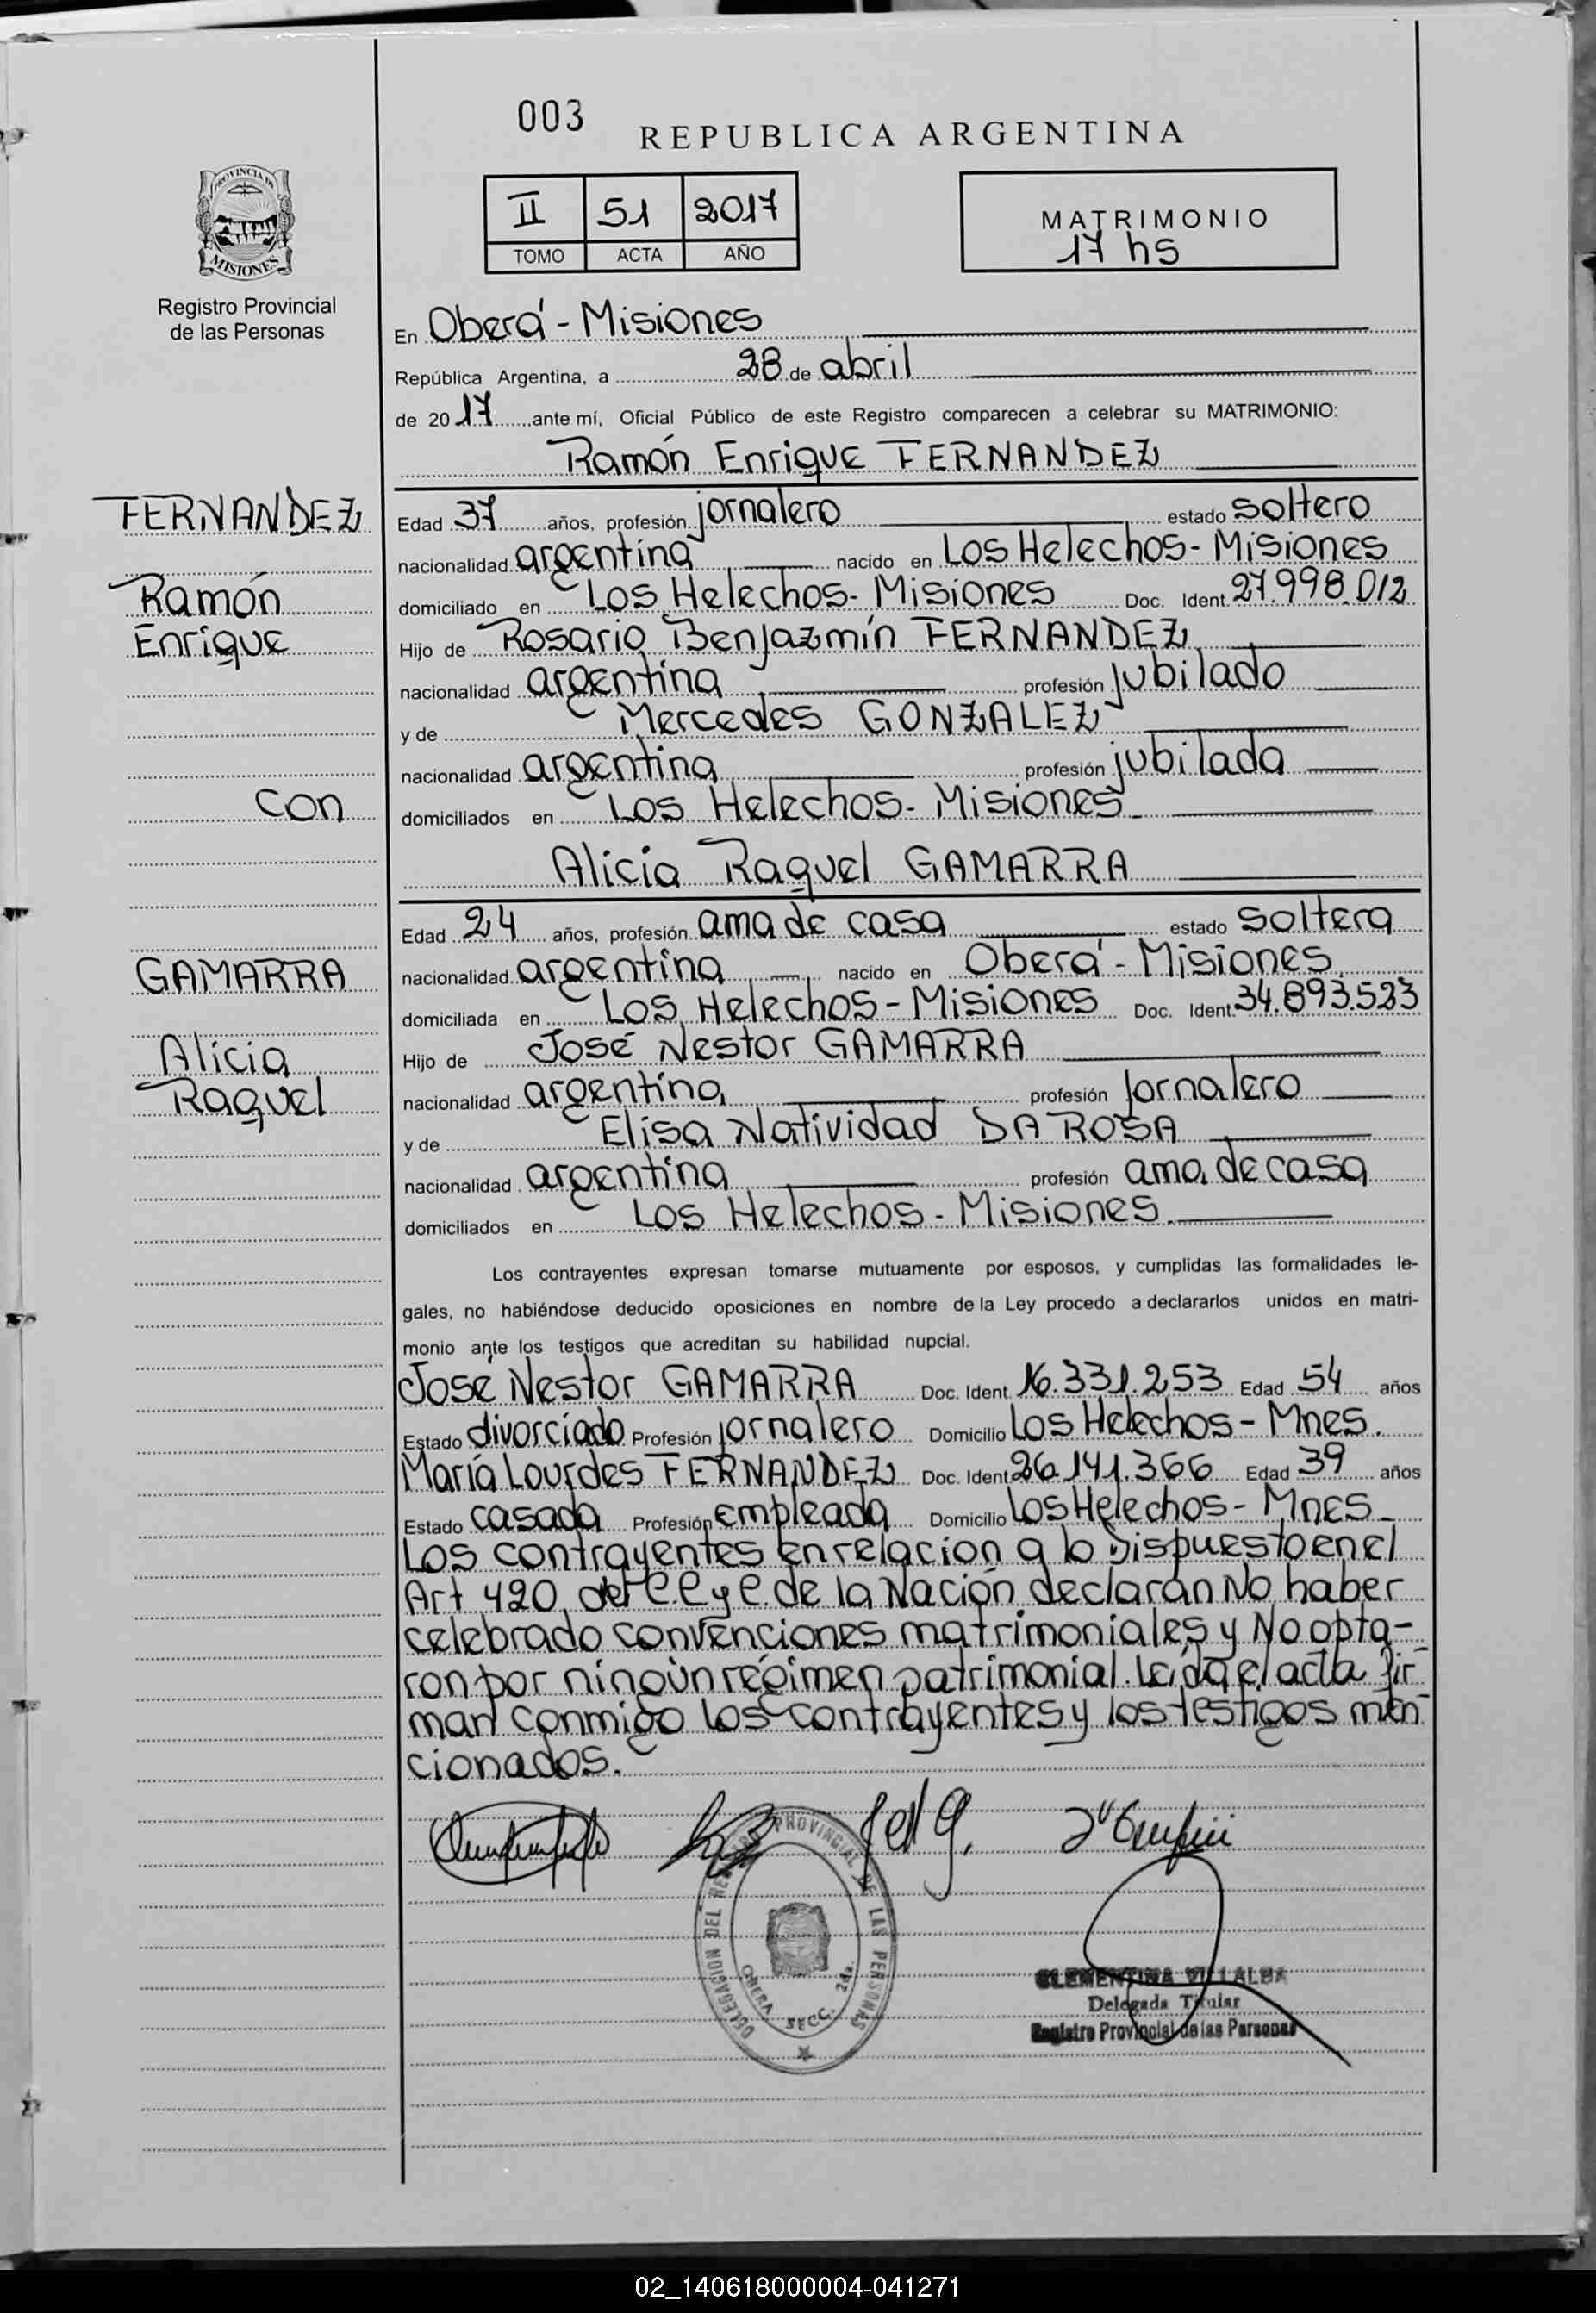 003
REPUBLICA ARGENTINA
PROVINCIA DE
MISIONES
Registro Provincial
de las Personas
II 51 2017
TOMO ACTA AÑO
MATRIMONIO
17 hs
En Oberá - Misiones
República Argentina, a 28 de abril
de 20 17 ante mí, Oficial Público de este Registro comparecen a celebrar su MATRIMONIO:
Ramón Enrique FERNANDEZ
FERNANDEZ
Ramón
Enrique
con
GAMARRA
Alicia
Raquel
Edad 37 años, profesión jornalero estado soltero
nacionalidad argentina nacido en Los Helechos - Misiones
domiciliado en Los Helechos - Misiones Doc. Ident. 27.998.012
Hijo de Rosario Benjazmín FERNANDEZ
nacionalidad argentina profesión jubilado
y de Mercedes GONZALEZ
nacionalidad argentina profesión jubilada
domiciliados en Los Helechos - Misiones
Alicia Raquel GAMARRA
Edad 24 años, profesión ama de casa estado soltera
nacionalidad argentina nacido en Oberá - Misiones
domiciliada en Los Helechos - Misiones Doc. Ident. 34.893.523
Hijo de José Nestor GAMARRA
nacionalidad argentina profesión jornalero
y de Elisa Natividad DA ROSA
nacionalidad argentina profesión ama de casa
domiciliados en Los Helechos - Misiones.
Los contrayentes expresan tomarse mutuamente por esposos, y cumplidas las formalidades le-
gales, no habiéndose deducido oposiciones en nombre de la Ley procedo a declararlos unidos en matri-
monio ante los testigos que acreditan su habilidad nupcial.
José Nestor GAMARRA Doc. Ident. 16.331.253 Edad 54 años
Estado divorciado Profesión jornalero Domicilio Los Helechos - Mnes.
María Lourdes FERNANDEZ Doc. Ident. 26.141.366 Edad 39 años
Estado casada Profesión empleada Domicilio Los Helechos - Mnes.
Los contrayentes en relacion a lo Dispuesto en el
Art 420 del C.C y C. de la Nación declaran No haber
celebrado convenciones matrimoniales y No opta-
ron por ningún regimen patrimonial. Leida el acta fir
man conmigo los contrayentes y los testigos men
cionados.
DELEGACION DEL REGISTRO PROVINCIAL DE LAS PERSONAS
OBERA SECC. 2da.
CLEMENTINA VILLALBA
Delegada Titular
Registro Provincial de las Personas
02_140618000004-041271